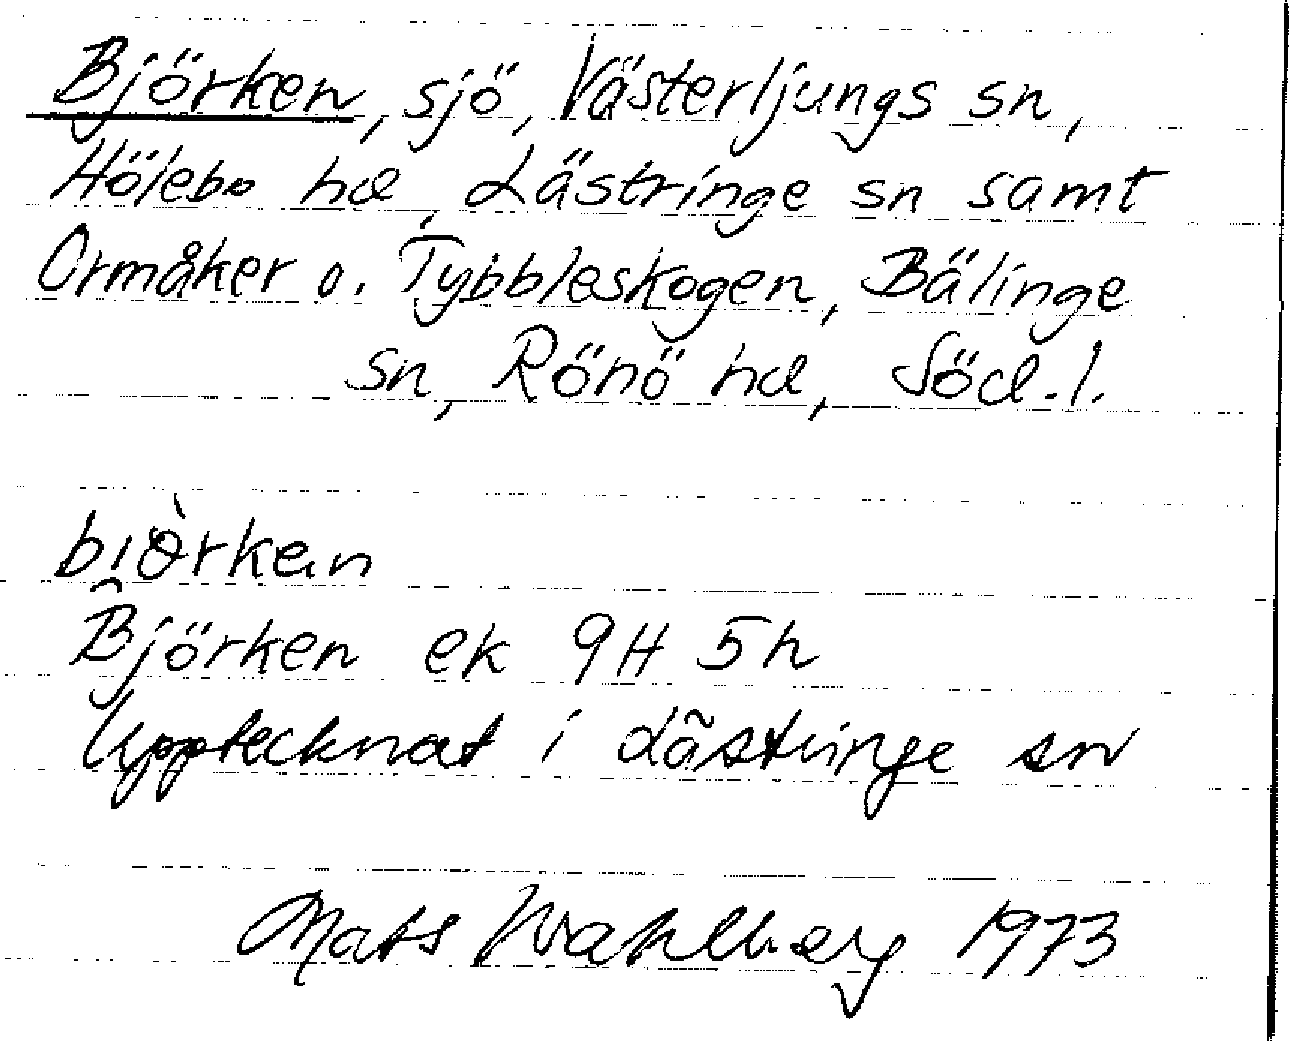 Björken, sjö, Västerljungs sn,
Hölebo hd, Lästringe sn samt
Ormåker o. Tybbleskogen, Bälinge
sn, Rönö hd, Söd. l.
bi̯òrkan
Björken ek 9H 5h
Upptecknat i Lästringe sn
Mats Wahlberg 1973